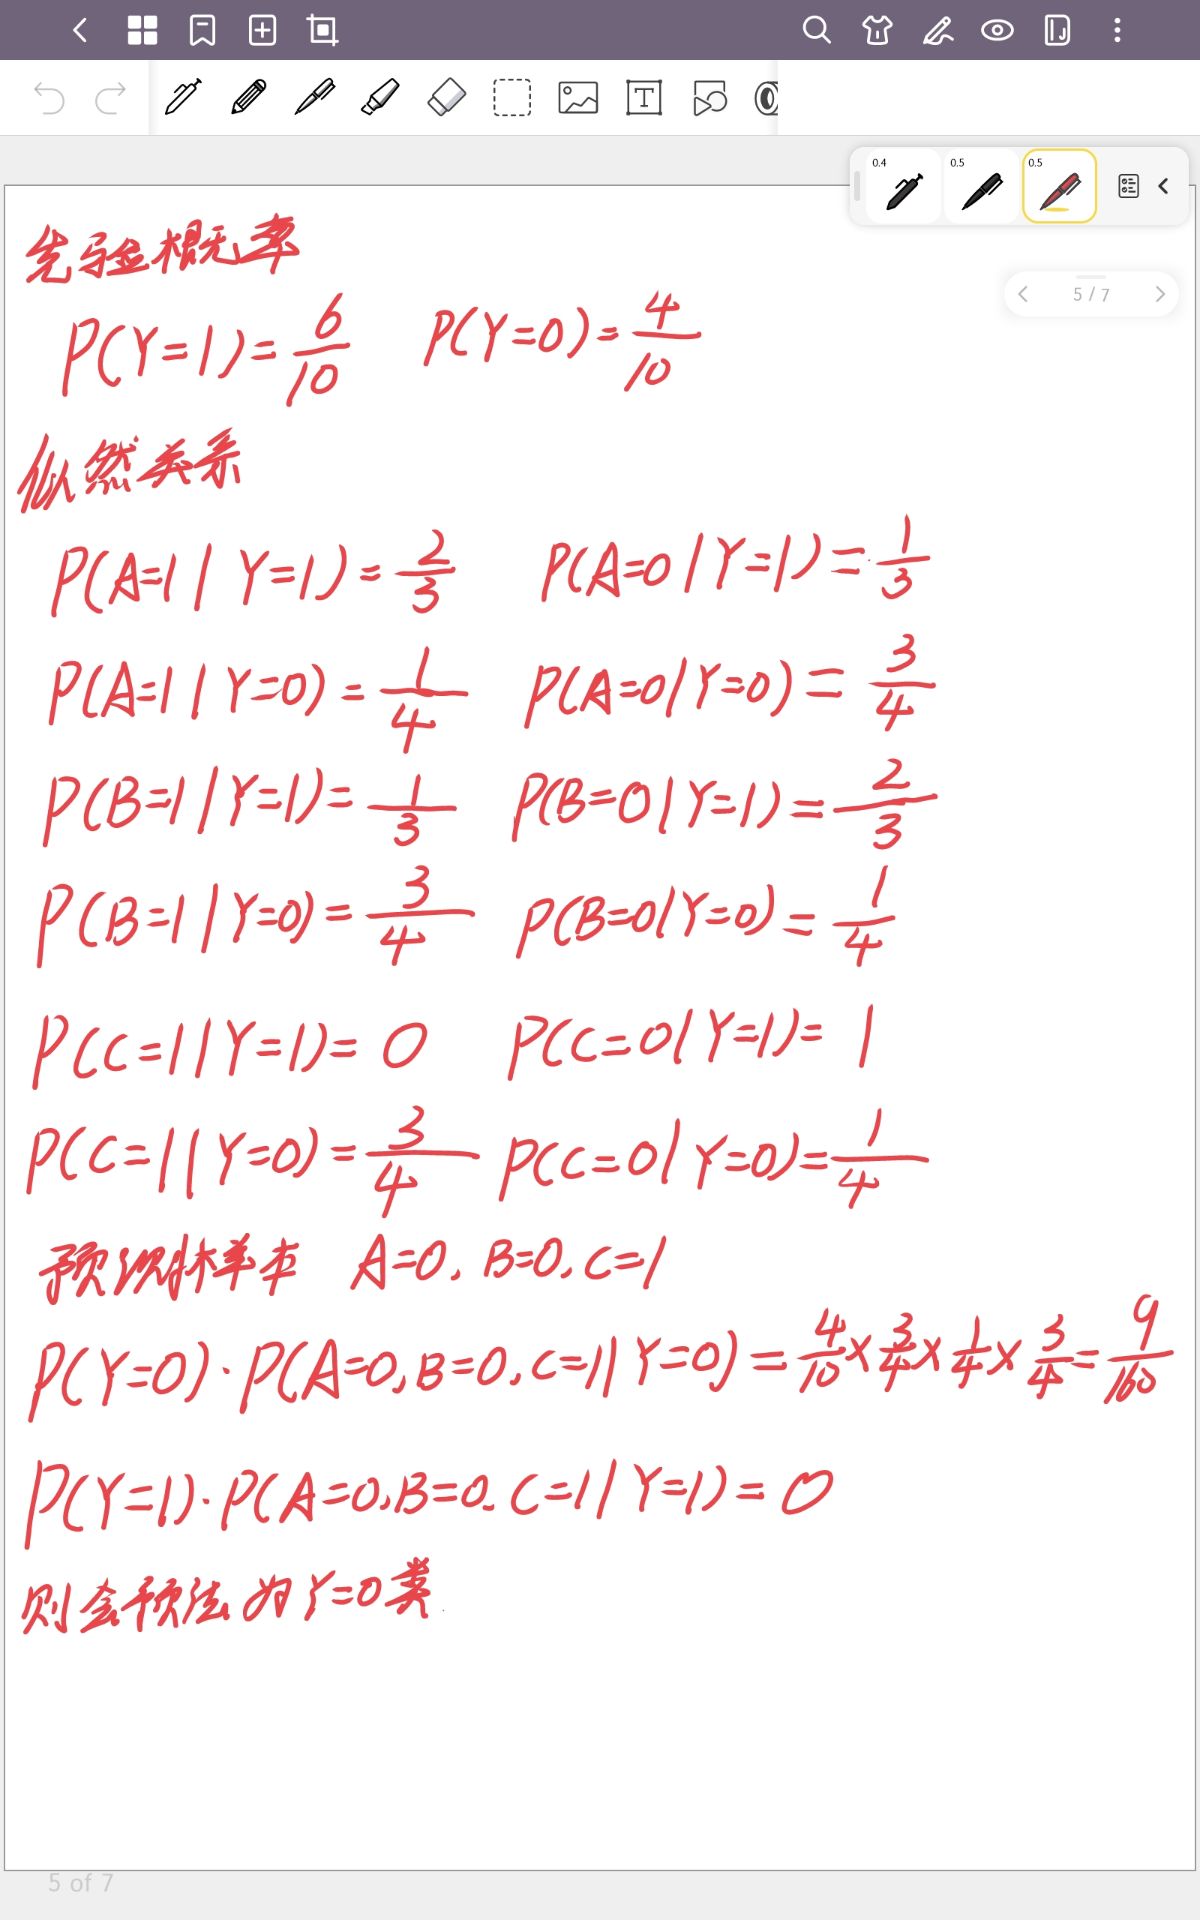 0.4 0.5 0.5
5 / 7
先验概率
P(Y=1)=6/10 P(Y=0)=4/10
似然关系
P(A=1|Y=1)=2/3 P(A=0|Y=1)=1/3
P(A=1|Y=0)=1/4 P(A=0|Y=0)=3/4
P(B=1|Y=1)=1/3 P(B=0|Y=1)=2/3
P(B=1|Y=0)=3/4 P(B=0|Y=0)=1/4
P(C=1|Y=1)=0 P(C=0|Y=1)=1
P(C=1|Y=0)=3/4 P(C=0|Y=0)=1/4
预测样本 A=0, B=0, C=1
P(Y=0)·P(A=0,B=0,C=1|Y=0)=4/10×3/4×1/4×3/4=9/160
P(Y=1)·P(A=0,B=0,C=1|Y=1)=0
则会预法为Y=0类.
5 of 7